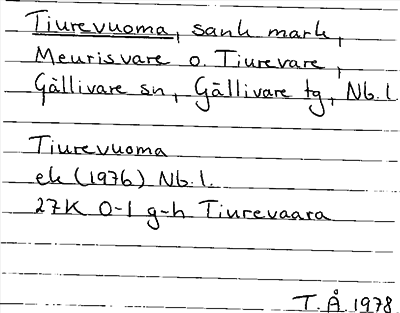 Tiurevuoma, sank mark,
Meurisvare o. Tiurevare,
Gällivare sn, Gällivare tg, Nb. l
Tiurevuoma
ek (1976) Nb. l.
27K 0-1 g-h Tiurevaara
T. Å. 1978